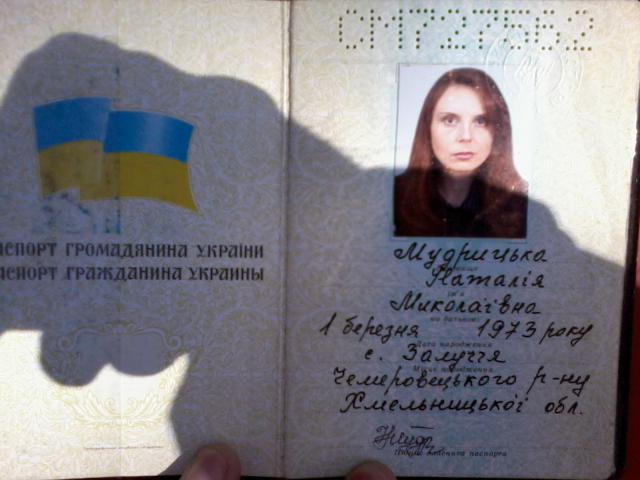 АСПОРТ ГРОМАДЯНИНА УКРАЇНИ
АСПОРТ ГРАЖДАНИНА УКРАИНЫ
СМ727562
Мудрицька
Наталія
Миколаївна
по батькові
1 березня 1973 року
Дата народження
с. Залуччя
Місце народження
Чемеровецького р-ну
Хмельницької обл.
Підпис власника паспорта